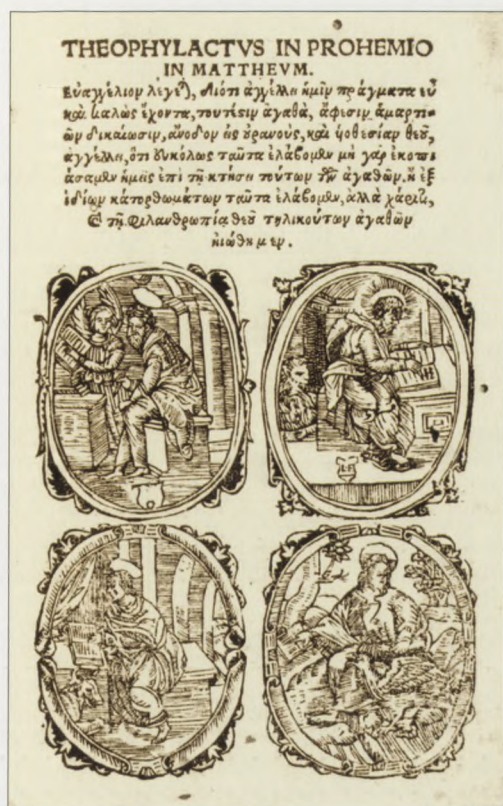 THEOPHYLACTVS IN PROHEMIO
IN MATTHEVM.
Εὐαγγέλιον λέγε), διότι ἀγγέλλει ἡμῖν πράγματα εὖ
καὶ καλῶς ἔχοντα, τουτέστιν ἀγαθὰ, ἄφεσιν ἁμαρτι-
ῶν δικαίωσιν, ἄνοδον εἰς οὐρανοὺς, καὶ υἱοθεσίαν θεοῦ,
ἀγγέλλει, ὅτι εὐκόλως ταῦτα ἐλάβομεν μὴ γὰρ ἐκοπι-
άσαμεν ἡμεῖς ἐπὶ τῇ κτήσει τούτων τῶν ἀγαθῶν. ἢ ἐξ
ἰδίων κατορθωμάτων ταῦτα ἐλάβομεν, ἀλλὰ χάριτι,
καὶ τῇ φιλανθρωπίᾳ θεοῦ τηλικούτων ἀγαθῶν
ἠξιώθημεν.